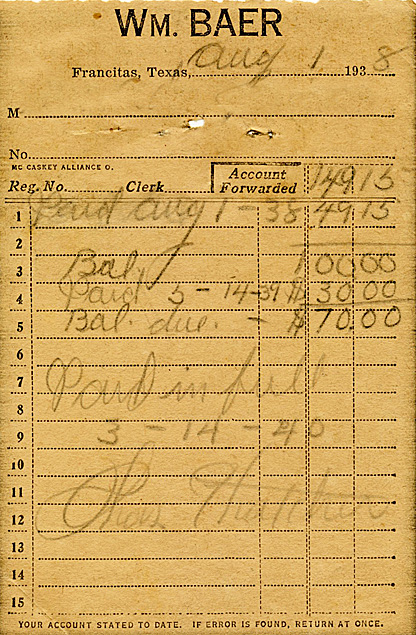 WM. BAER
Francitas, Texas, Aug 1 1938
M
No.
MC CASKEY ALLIANCE O.
Reg. No. Clerk Account Forwarded 149 15
1 Paid Aug 1 - 38 49 15
2
3 Bal, 100 00
4 Paid 5 - 14 - 39 $ 30 00
5 Bal. due. - $ 70.00
6
7 Paid in full
8
9 3 - 14 - 40
10
11
12
13
14
15
YOUR ACCOUNT STATED TO DATE. IF ERROR IS FOUND, RETURN AT ONCE.